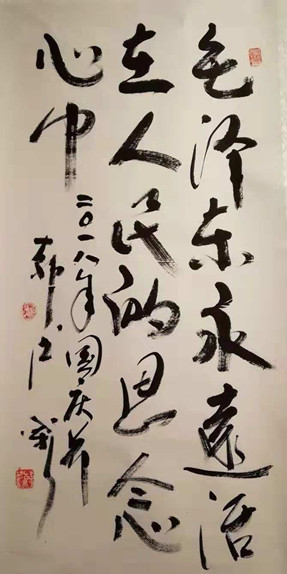 毛泽东永远活
在人民的思念
心中
二〇一八年国庆节